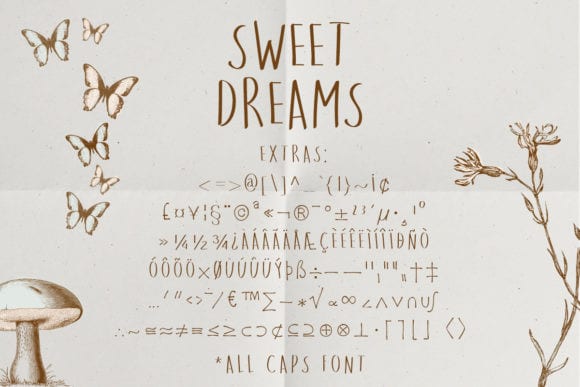 SWEET
DREAMS
EXTRAS:
<=>@[\]^_`{|}~¡¢
£¤¥¦§¨©ª«¬®¯°±²³´µ·¸¹º
»¼½¾¿ÀÁÂÃÄÅÆÇÈÉÊËÌÍÎÏÐÑÒ
ÓÔÕÖ×ØÙÚÛÜÝÞß÷–—‘’‚“”„†‡
…′″‹›‾⁄€™∑−∗√∝∞∠∧∨∩∪∫
∴∼≅≈≠≡≤≥⊂⊃⊄⊆⊇⊕⊗⊥⋅⌈⌉⌊⌋〈〉
*ALL CAPS FONT